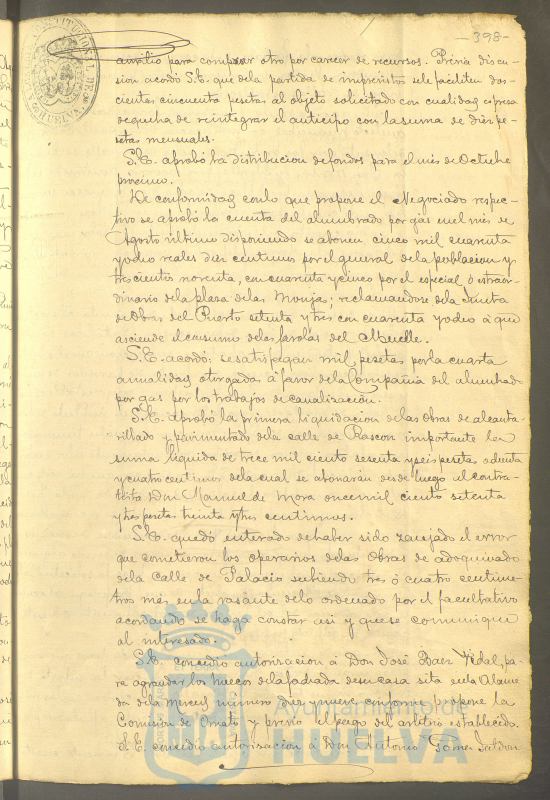 -398-
auxilio para comprar otro por carecer de recursos. Previa discu-
sion acordó S.E. que de la partida de imprevistos se le faciliten dos-
cientas cincuenta pesetas al objeto solicitado con cualidad espresa
de que ha de reintegrar el anticipo con la suma de diez pe-
setas mensuales.
S.E. aprobó la distribucion de fondos para el mes de Octubre
próximo.
De conformidad con lo que propone el Negociado respec-
tivo se aprobó la cuenta del alumbrado por gas en el mes de
Agosto último disponiendo se abonen cinco mil cuarenta
y ocho reales diez centimos por el general de la poblacion y
trescientos noventa, con cuarenta y cinco por el especial ó estraor-
dinario de la plaza de las Monjas; reclamandose de la Junta
de Obras del Puerto setenta y tres con cuarenta y ocho á que
asciende el consumo de las farolas del Muelle.
S.E. acordó, se satisfagan mil pesetas por la cuarta
anualidad otorgada á favor de la Compañia del alumbrado
por gas por los trabajos de canalizacion.
S.E. aprobó la primera liquidacion de las obras de alcanta-
rillado y pavimentado de la calle de Rascon importante la
suma líquida de trece mil ciento sesenta y seis pesetas ochenta
y cuatro centimos de la cual se abonarán desde luego al contra-
tista Don Manuel de Mora once mil ciento setenta
y tres pesetas treinta y tres centimos.
S.E. quedó enterado de haber sido zanjado el error
que cometieron los operarios de las Obras de adoquinado
de la calle de Palacio subiendo tres ó cuatro centime-
tros mas en la rasante de lo ordenado por el facultativo
acordando se haga constar asi y que se comunique
al interesado.
S.E. concedió autorizacion á Don José Baez Vidal, pa-
ra agrandar los huecos de la fachada de su casa sita en la Alame-
da de la Merced número diez y nueve conforme propone la
Comision de Ornato y previo el pago del arbitrio establecido.
S.E. concedió autorizacion á Don Antonio Gomez
Ayuntamiento de
HUELVA